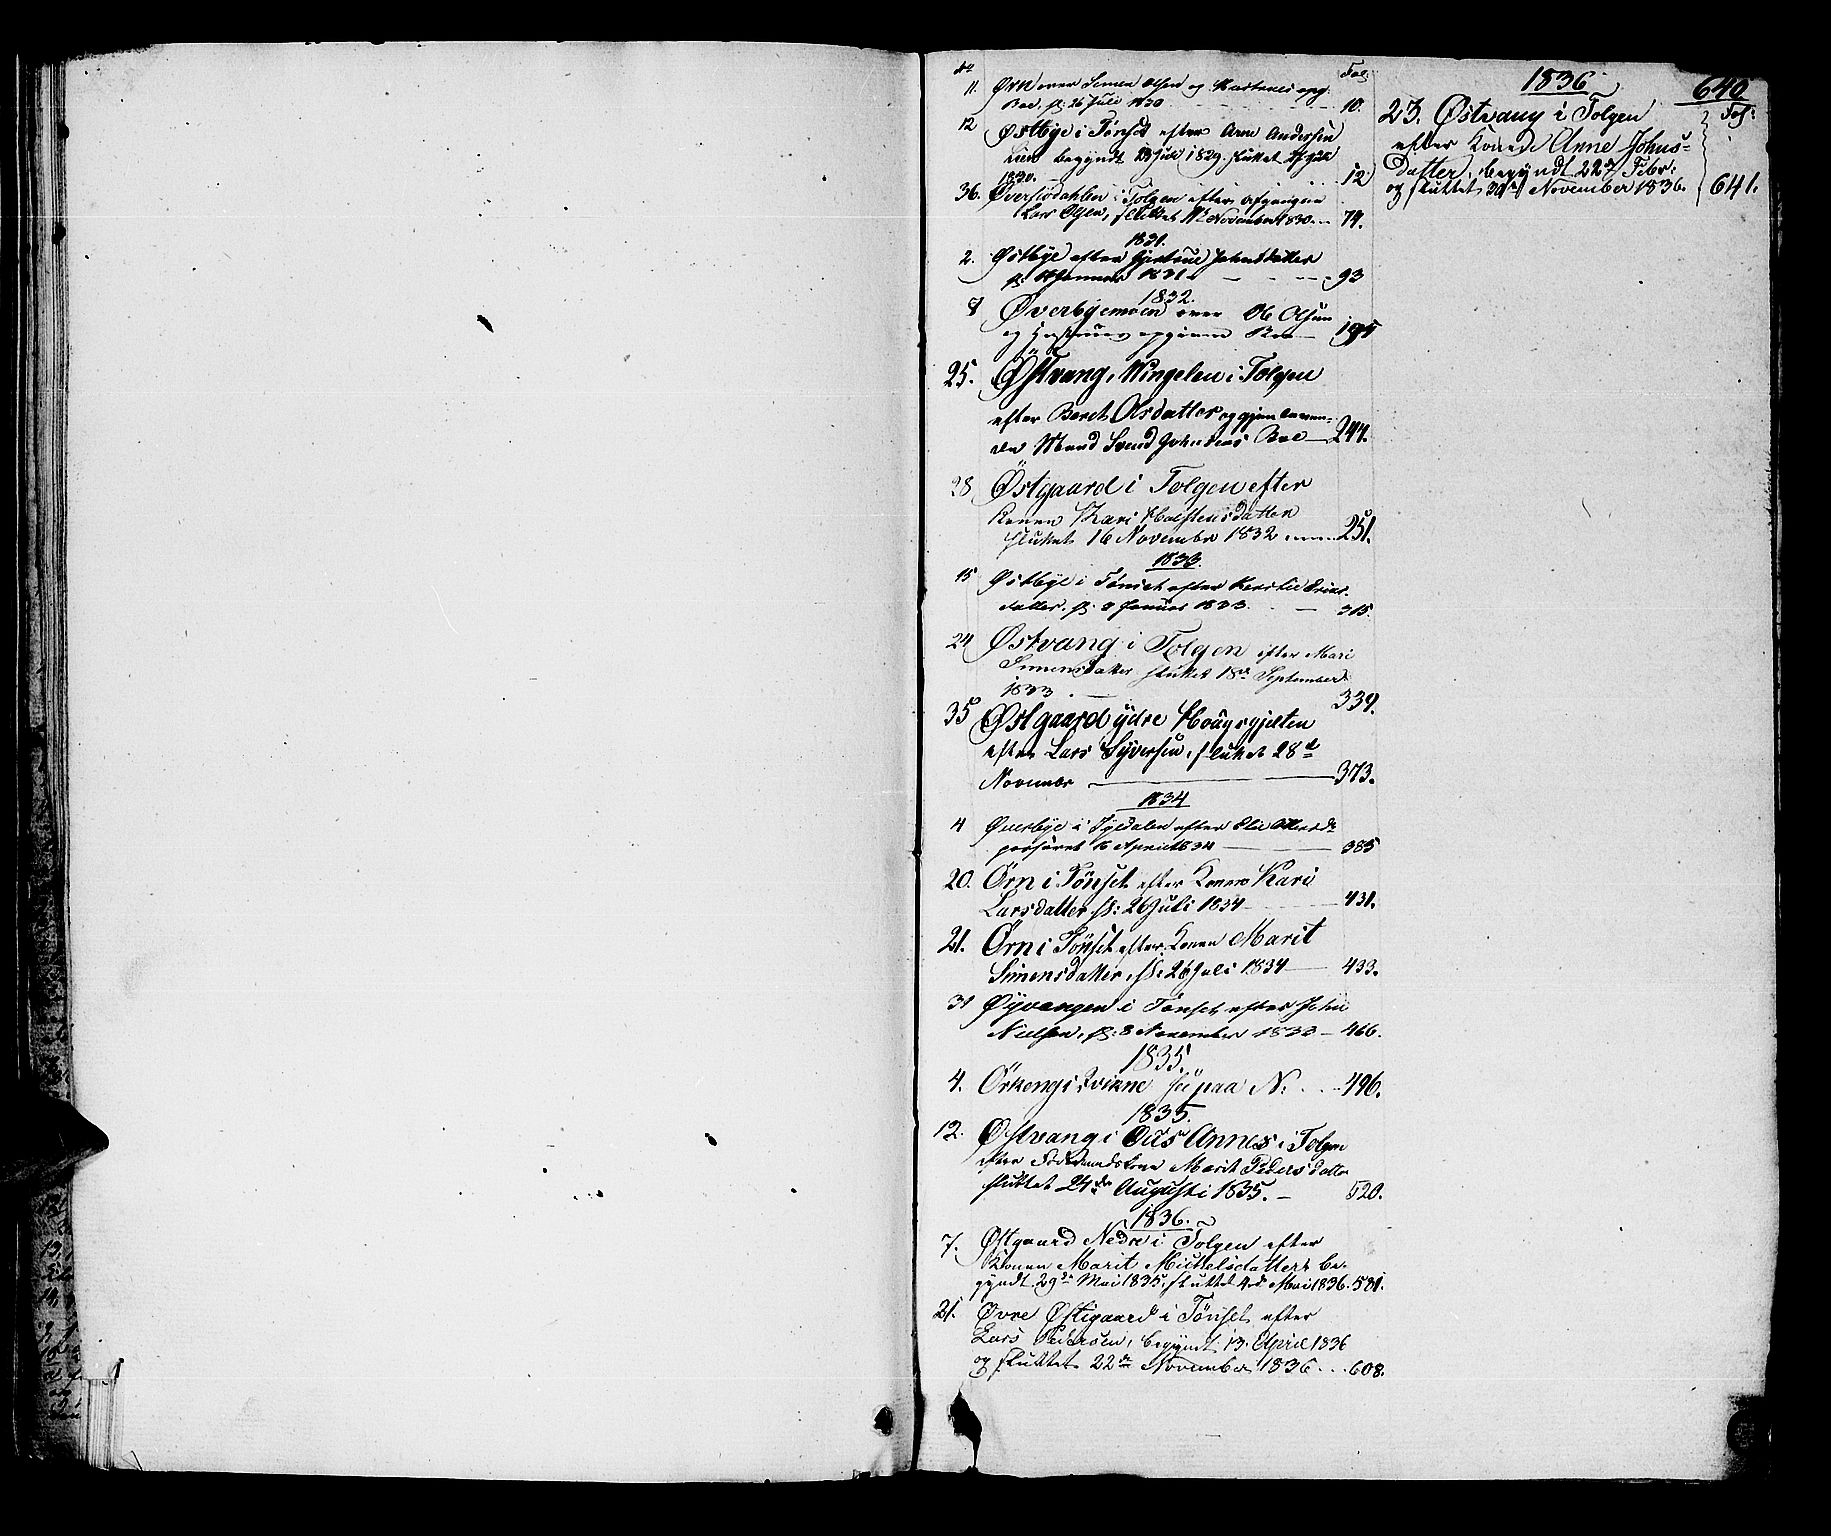 No Fol:
11. Ørn over Simen Olsen og Hustrues opg.
Boe. sl: 26 Juli 1830 10.
12 Østbye i Tønset efter Arne Andersen
Lien begyndt Juli 1829. sluttet Juli
1830. 12
36. Øversjødahlen i Tolgen efter afgangne
Lars Olsen, sluttet November 1830 74.
1831.
2. Østbye efter Gjertrud Johnsdatter
sl: Januar 1831. 93
1832.
9 Øverbyemoen over Ole Olsen
og Hustrues opgivne Boe 195
25. Østvang, Wingelen i Tolgen
efter Beret Olsdatter og gjenleven-
de Mand Svend Johnsens Boe 244.
28 Østgaard i Tolgen efter
Konen Kari Halstensdatter
sluttet 16 November 1832 251.
1833.
15 Østbye i Tønset efter Kirstie Erics-
datter. sl: 9 Januar 1833. 315.
24 Østvang i Tolgen efter Mari
Simensdatter sluttet 18de September
1833 339.
35 Østgaard ydre Hougsgjelten
efter Lars Syversen, sluttet 28de
November 373.
1834
4 Øverbye i Tyldalen efter Eli Ollersdr
passeret 16 April 1834 385
20. Ørn i Tønset efter Konen Kari
Larsdatter sl: 26 Juli 1834 431.
21. Ørn i Tønset efter Konen Marit
Simensdatter, sl: 26 Juli 1834 433.
31 Øyvangen i Tønset efter John
Nielsen, sl: 8 November 1833 466.
1835.
4. Ørkeng i Qvikne see paa N: 496.
1835.
12. Østvang i Ous Annex i Tolgen
efter Føderaadskone Marit Pedersdatter
sluttet 24de Augusti 1835. 520.
1836.
7. Østgaard Nedre i Tolgen efter
Konen Marit Mikkelsdatter be-
gyndt 29de Mai 1835. sluttet 4de Mai 1836. 581.
21. Øvre Østigaard i Tønset efter
Lars Pedersen, begyndt 13. April 1836
og sluttet 22de November 1836 608.
1836 640
23. Østvang i Tolgen Fol:
efter Konen Anne Johns-
datter, begyndt 22de Febr:
og sluttet November 1836. 641.